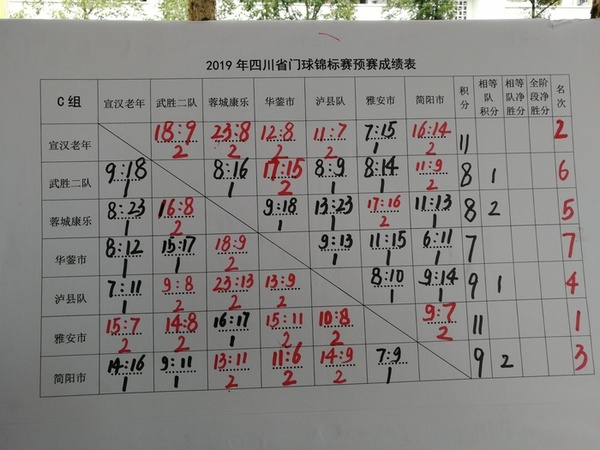 2019年四川省门球锦标赛预赛成绩表
C组 宣汉老年 武胜二队 蓉城康乐 华蓥市 泸县队 雅安市 简阳市 积分 相等队积分 相等队净胜分 全阶段净胜分 名次
宣汉老年 18:9 23:8 12:8 11:7 7:15 16:14 11 2
2 2 2 2 1 2
武胜二队 9:18 8:16 17:15 8:9 8:14 11:9 8 1 6
1 1 2 1 1 2
蓉城康乐 8:23 16:8 9:18 13:23 17:16 11:13 8 2 5
1 2 1 1 2 1
华蓥市 8:12 15:17 18:9 9:13 11:15 6:11 7 7
1 1 2 1 1 1
泸县队 7:11 9:8 23:13 13:9 8:10 9:14 9 1 4
1 2 2 2 1 1
雅安市 15:7 14:8 16:17 15:11 10:8 9:7 11 1
2 2 1 2 2 2
简阳市 14:16 9:11 13:11 11:6 14:9 7:9 9 2 3
1 1 2 2 2 1